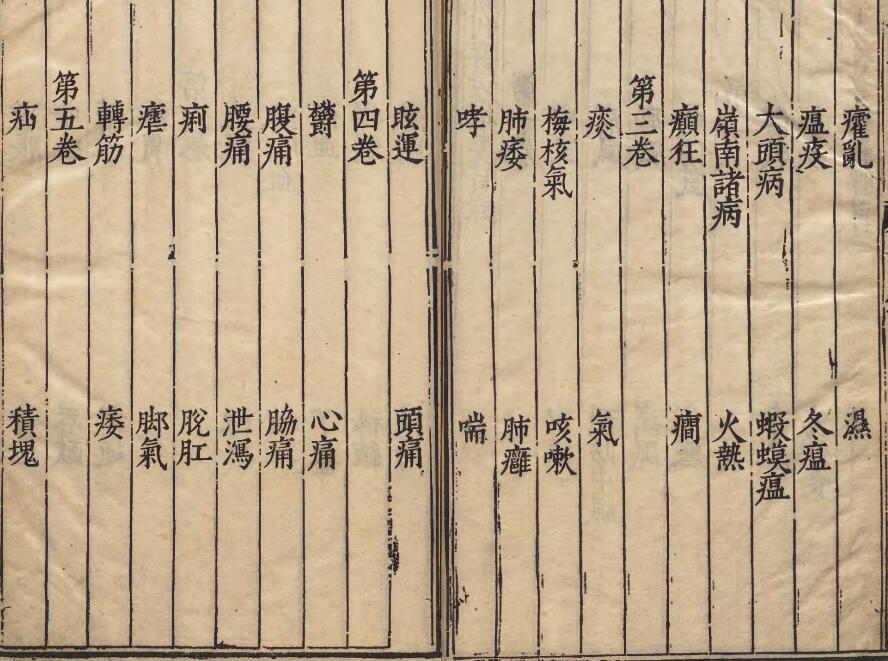 癨亂　濕
瘟疫　冬瘟
大頭病　蝦蟆瘟
嶺南諸病　火熱
癲狂　癎
第三卷
痰　氣
梅核氣　咳嗽
肺痿　肺癰
哮　喘
眩運　頭痛
第四卷
欝　心痛
腹痛　脇痛
腰痛　泄瀉
痢　脫肛
瘧　脚氣
轉筋　痿
第五卷
疝　積塊